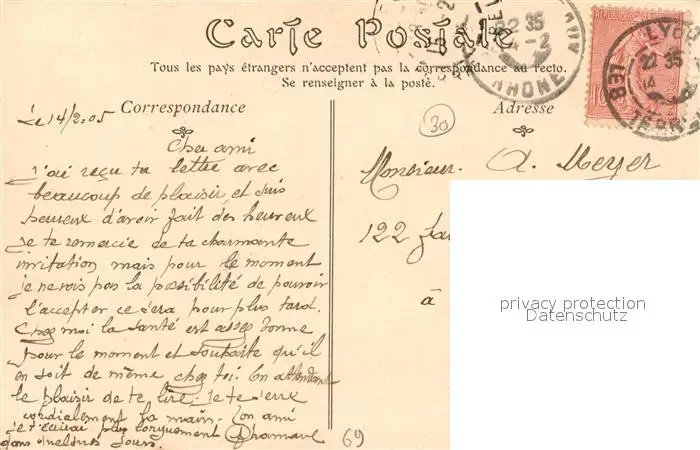 Carte Postale
Tous les pays étrangers n'acceptent pas la correspondance au recto.
Se renseigner à la poste.
Correspondance
Adresse
Le 14/2-05
30
Cher ami
J'ai reçu ta lettre avec
beaucoup de plaisir et suis
heureux d'avoir fait des heureux
Je te remercie de ta charmante
invitation mais pour le moment
je ne vois pas la possibilité de pouvoir
l'accepter ce sera pour plus tard.
Chez moi la santé est assez bonne
pour le moment et souhaite qu'il
en soit de même chez toi. En attendant
le plaisir de te lire. Je te serre
cordialement la main. Ton ami
Je t'écrirai plus longuement
dans quelques jours.
69
Monsieur. A. Meyer
122
à
22 35
RHONE
LYON
22 35
14
privacy protection
Datenschutz